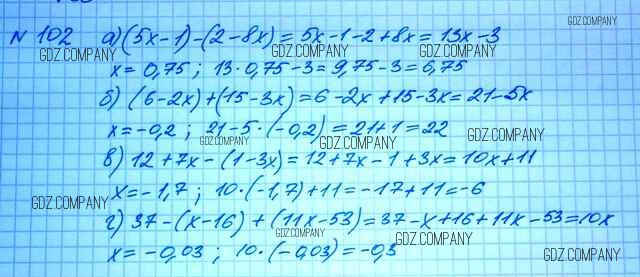 GDZ.COMPANY
№ 102 а) (5x-1)-(2-8x) = 5x-1-2+8x = 13x-3
GDZ.COMPANY GDZ.COMPANY GDZ.COMPANY
x = 0,75 ; 13·0,75-3 = 9,75-3 = 6,75
б) (6-2x)+(15-3x) = 6-2x+15-3x = 21-5x
x = -0,2 ; 21-5·(-0,2) = 21+1 = 22
GDZ.COMPANY GDZ.COMPANY GDZ.COMPANY
в) 12+7x-(1-3x) = 12+7x-1+3x = 10x+11
x = -1,7 ; 10·(-1,7)+11 = -17+11 = -6
GDZ.COMPANY
г) 37-(x-16)+(11x-53) = 37-x+16+11x-53 = 10x
GDZ.COMPANY GDZ.COMPANY
x = -0,03 ; 10·(-0,03) = -0,3
GDZ.COMPANY GDZ.COMPANY